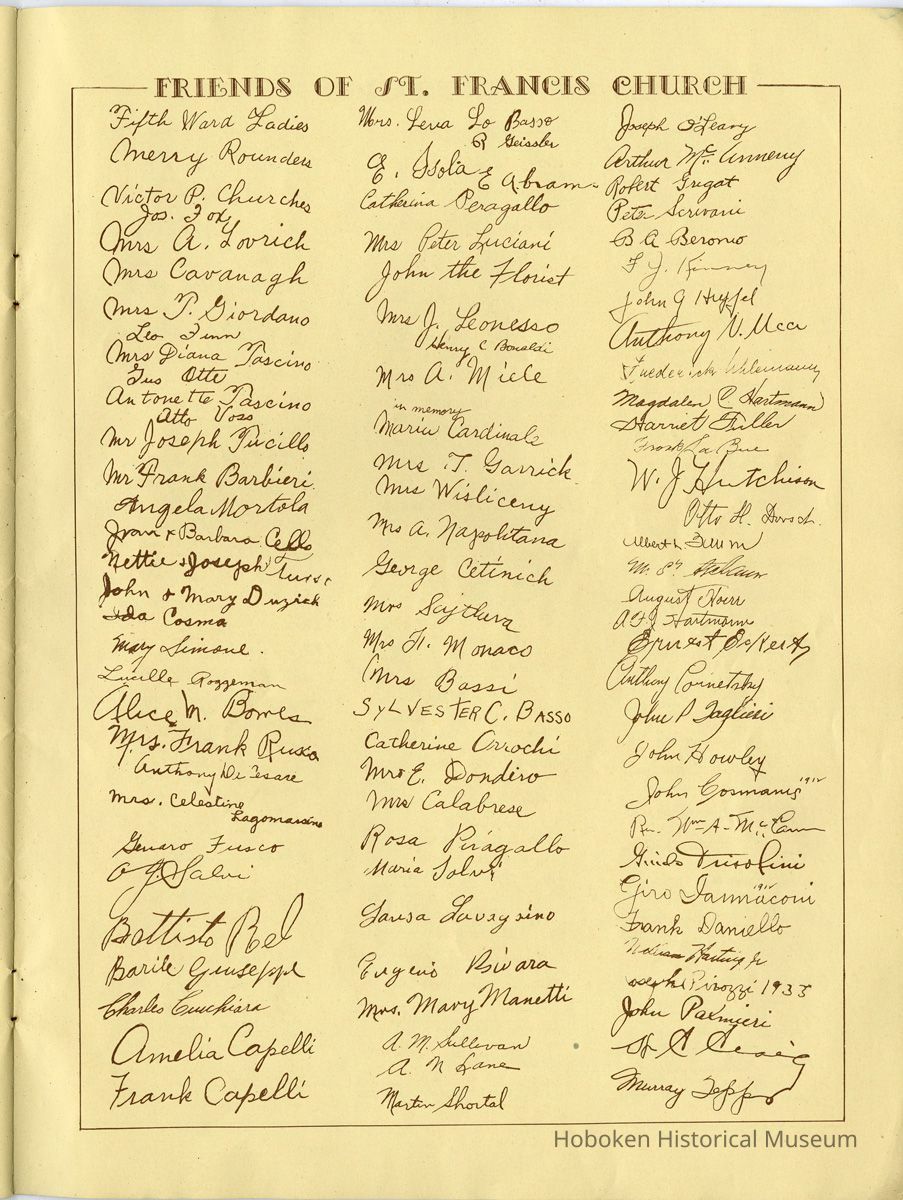 FRIENDS OF ST. FRANCIS CHURCH
Fifth Ward Ladies
Merry Rounders
Victor P. Churches
Jos. Fox
Mrs A. Lovrich
Mrs Cavanagh
Mrs T. Giordano
Leo Finn
Mrs Diana Tascino
Gus Otte
Antonette Tascino
Otto Voss
Mr Joseph Tucillo
Mr Frank Barbieri
Angela Mortola
Barbara Cello
Nettie & Joseph
John & Mary Duzick
Ida Cosma
Mary Simone.
Lucille Roggeman
Alice M. Bowes
Mrs. Frank Russo
Anthony De Cesare
Mrs. Celestine
Lagomarsino
Genaro Fusco
O J. Salvi
Battisto Rel
Barile Giuseppe
Charles Cucchiara
Amelia Capelli
Frank Capelli
Mrs. Lena Lo Basso
R Geissler
E. Isola E Abram
Catherina Peragallo
Mrs Peter Luciani
John the Florist
Mrs J. Leonesso
Henry C Bonaldi
Mrs A. Miele
in memory
Maria Cardinale
Mrs. T. Garrick
Mrs Wisliceny
Mrs A. Napolitana
George Cetinich
Mrs
Mrs H. Monaco
Mrs Bassi
SYLVESTER C. BASSO
Catherine Orrochi
Mrs E. Dondero
Mrs Calabrese
Rosa Piragallo
Maria Salvi
Eugenio Rivara
Mrs. Mary Manetti
A. M. Sullivan
A. N Lane
Martin Shortal
Joseph O'Leary
Arthur Mc Anneny
Robert Grigat
Peter Scrivani
B A Beronio
F J. Kinney
John G
Anthony N.
Frederick
Magdalen C. Hartmann
Harriet Filler
Frank La Bue
W. J Hutchison
Otto H.
Albert
August
A J Hartmann
Ernest Eckert
Anthony
John P Taglieri
John Howley
John Cosmanis
Wm A. McCann
Guido Trisolini
Giro Iannaconi
Frank Daniello
William Harting Jr
Joseph Pirozzi 1933
John Palmieri
Craig
Murray
Hoboken Historical Museum